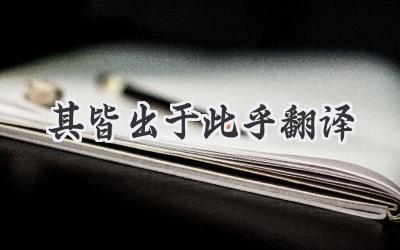 其皆出于此乎翻译